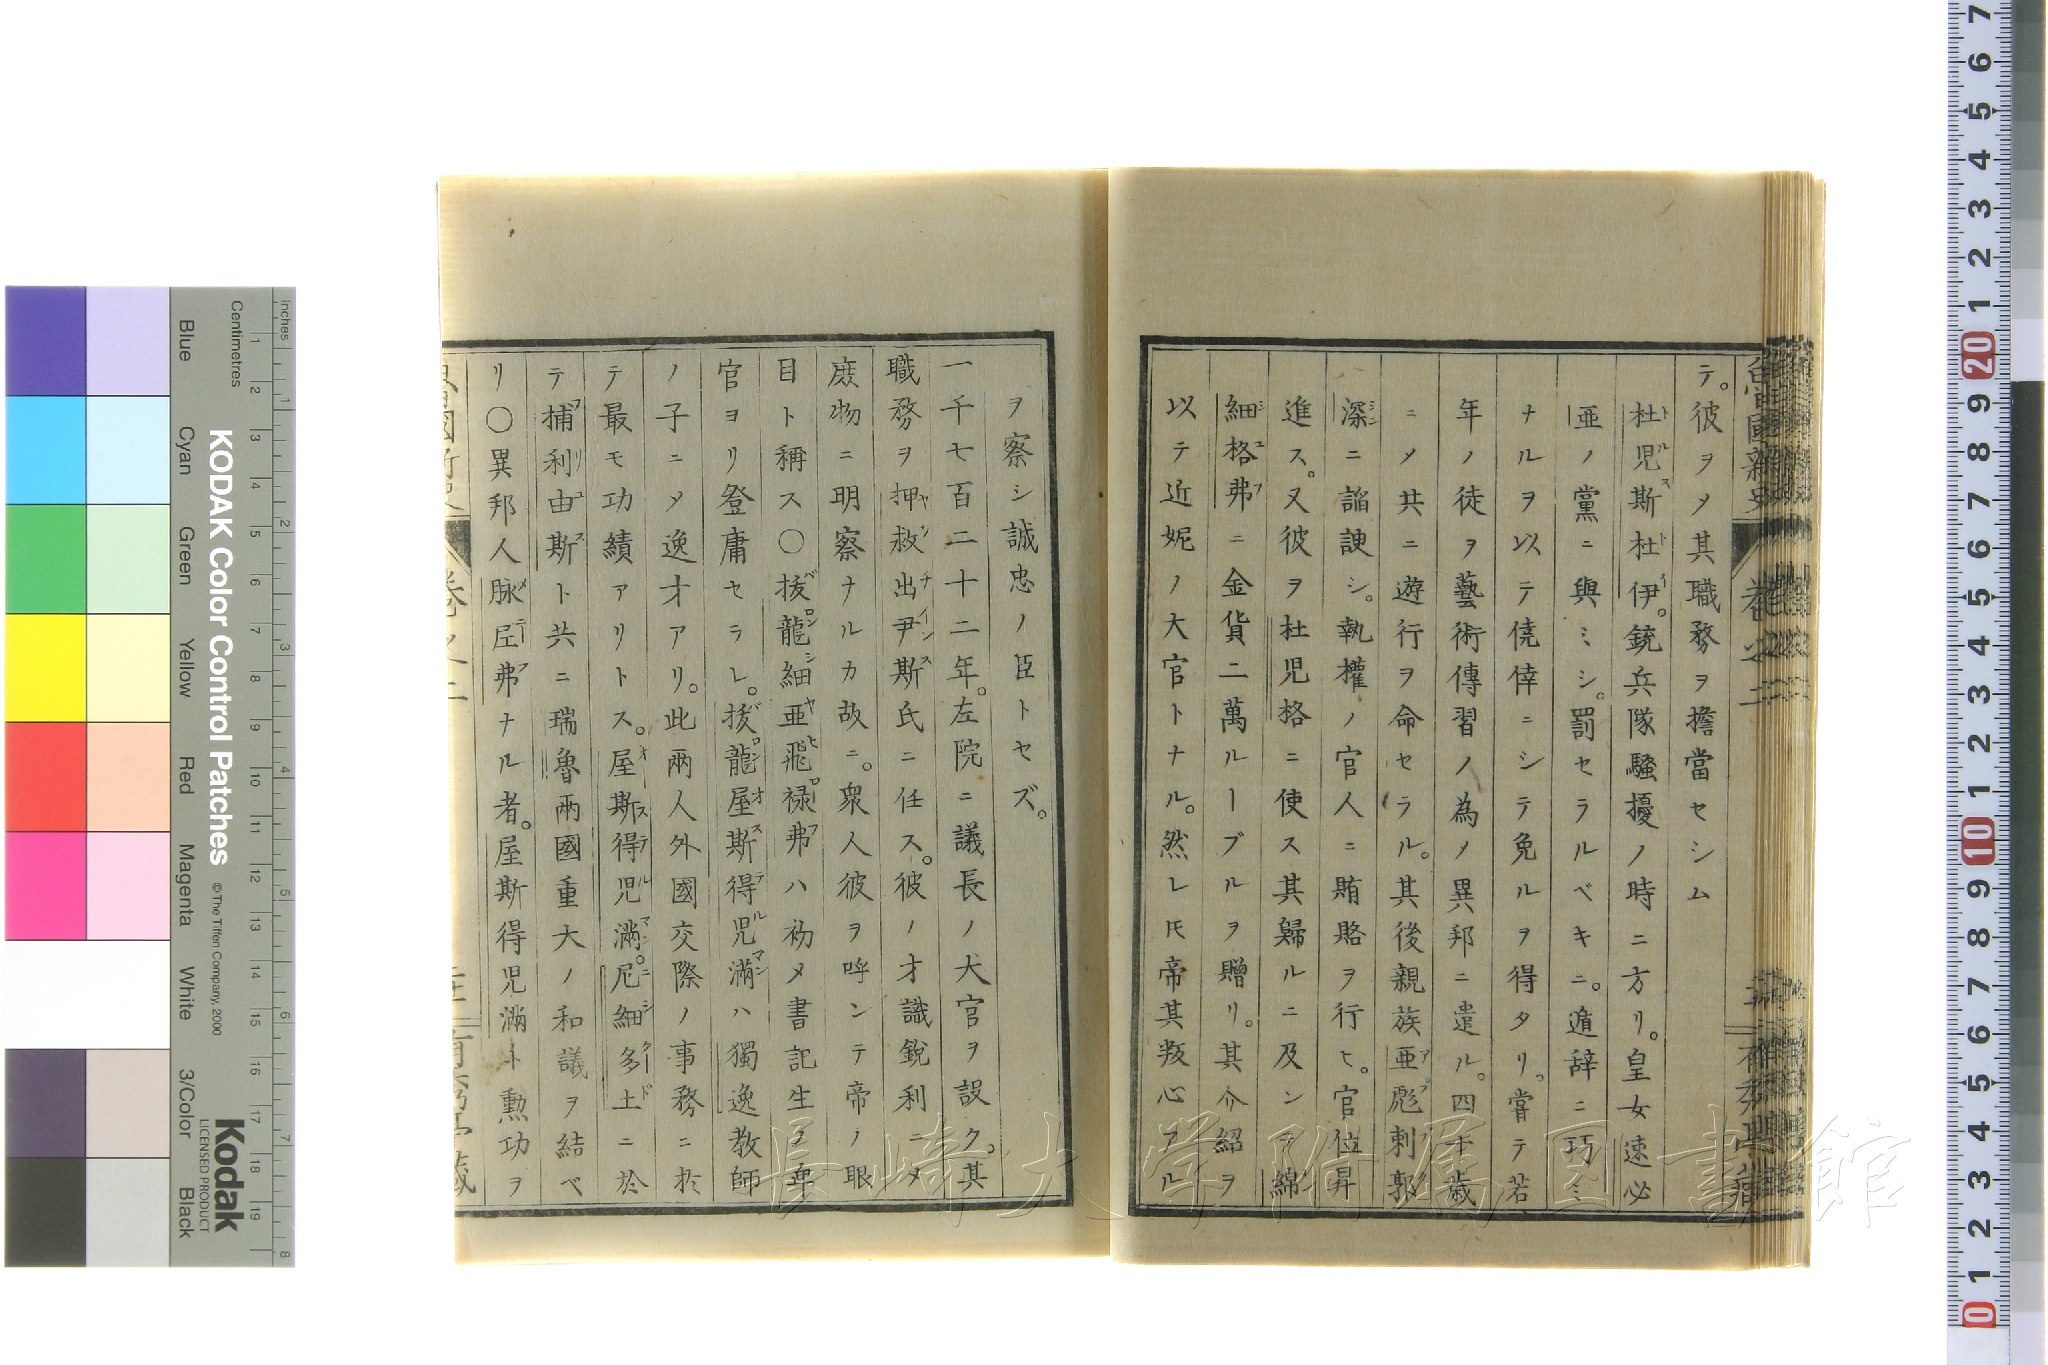 テ。彼ヲメ其職務ヲ擔當セシム
杜児斯杜伊。銃兵隊騷擾ノ時ニ方リ。皇女速必
亜ノ黨ニ與ミシ。罰セラルベキニ。遁辞ニ巧ミ
ナルヲ以テ僥倖ニシテ免ルヲ得タリ。嘗テ若
年ノ徒ヲ藝術傳習ノ為メ異邦ニ遣ル。四十歳
ニメ共ニ遊行ヲ命セラル。其後親族亜彪剌郭
深ニ諂諛シ。執權ノ官人ニ賄賂ヲ行ヒ。官位昇
進ス。又彼ヲ杜児格ニ使ス其歸ルニ及ンテ綿
細格弗ニ金貨二萬ルーブルヲ贈リ。其介紹ヲ
以テ近妮ノ大官トナル。然レ𪜈帝其叛心アル
ヲ察シ誠忠ノ臣トセズ。
一千七百二十二年。左院ニ議長ノ大官ヲ設ク。其
職務ヲ押敖出尹斯氏ニ任ス。彼ノ才識銳利ニメ
庶物ニ明察ナルカ故ニ。衆人彼ヲ呼ンテ帝ノ眼
目ト稱ス〇拔龍細亜飛禄弗ハ初メ書記生ノ
官ヨリ登庸セラレ。拔龍屋斯得児滿ハ獨逸教師
ノ子ニメ逸才アリ。此兩人外國交際ノ事務ニ於
テ最モ功績アリトス。屋斯得児滿。尼細多土ニ於
テ捕利由斯ト共ニ瑞魯兩國重大ノ和議ヲ結ベ
リ〇異邦人脉𡱈弗ナル者。屋斯得児滿ト勲功ヲ
卷之二
長崎大学附属図書館
KODAK Color Control Patches
© The Tiffen Company, 2000
Kodak
LICENSED PRODUCT
Inches
Centimetres
Blue
Cyan
Green
Yellow
Red
Magenta
White
3/Color
Black